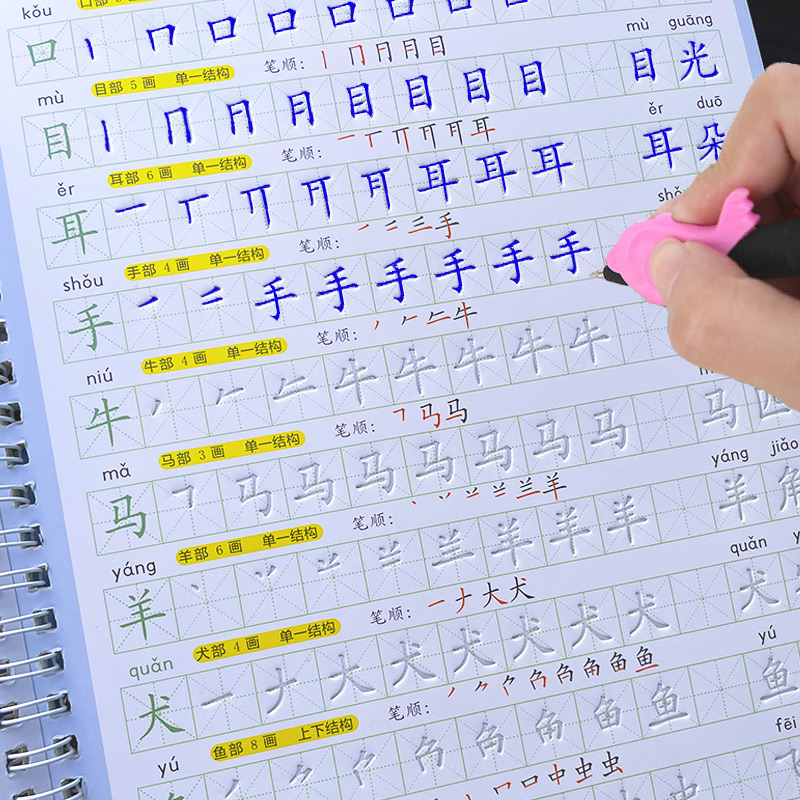 kǒu
口 丨 冂 口 口 口 口 口
mù 目部 5 画 单一结构 笔顺: 丨 冂 月 月 目 mù guāng
目 丨 冂 月 月 目 目 目 目 目 光
ěr 耳部 6 画 单一结构 笔顺: 一 丅 丌 耳 ěr duō
耳 一 丅 丌 耳 耳 耳 耳 朵
shǒu 手部 4 画 单一结构 笔顺: 一 二 三 手
手 一 二 手 手 手 手 手 手
niú 牛部 4 画 单一结构 笔顺: 丿 𠂉 牛
牛 丿 𠂉 牛 牛 牛 牛 牛
mǎ 马部 3 画 单一结构 笔顺: ㇕ 马 马
马 ㇕ 马 马 马 马 马 马 马 马
yáng 羊部 6 画 单一结构 笔顺: 丶 丷 羊 yáng jiǎo
羊 丶 丷 羊 羊 羊 羊 羊 角
quǎn 犬部 4 画 单一结构 笔顺: 一 ナ 大 犬 quǎn
犬 一 ナ 大 犬 犬 犬 犬 犬 犬
yú 鱼部 8 画 上下结构 笔顺: 丿 𠂊 鱼 yú
鱼 鱼
口 中 虫 虫 fēi